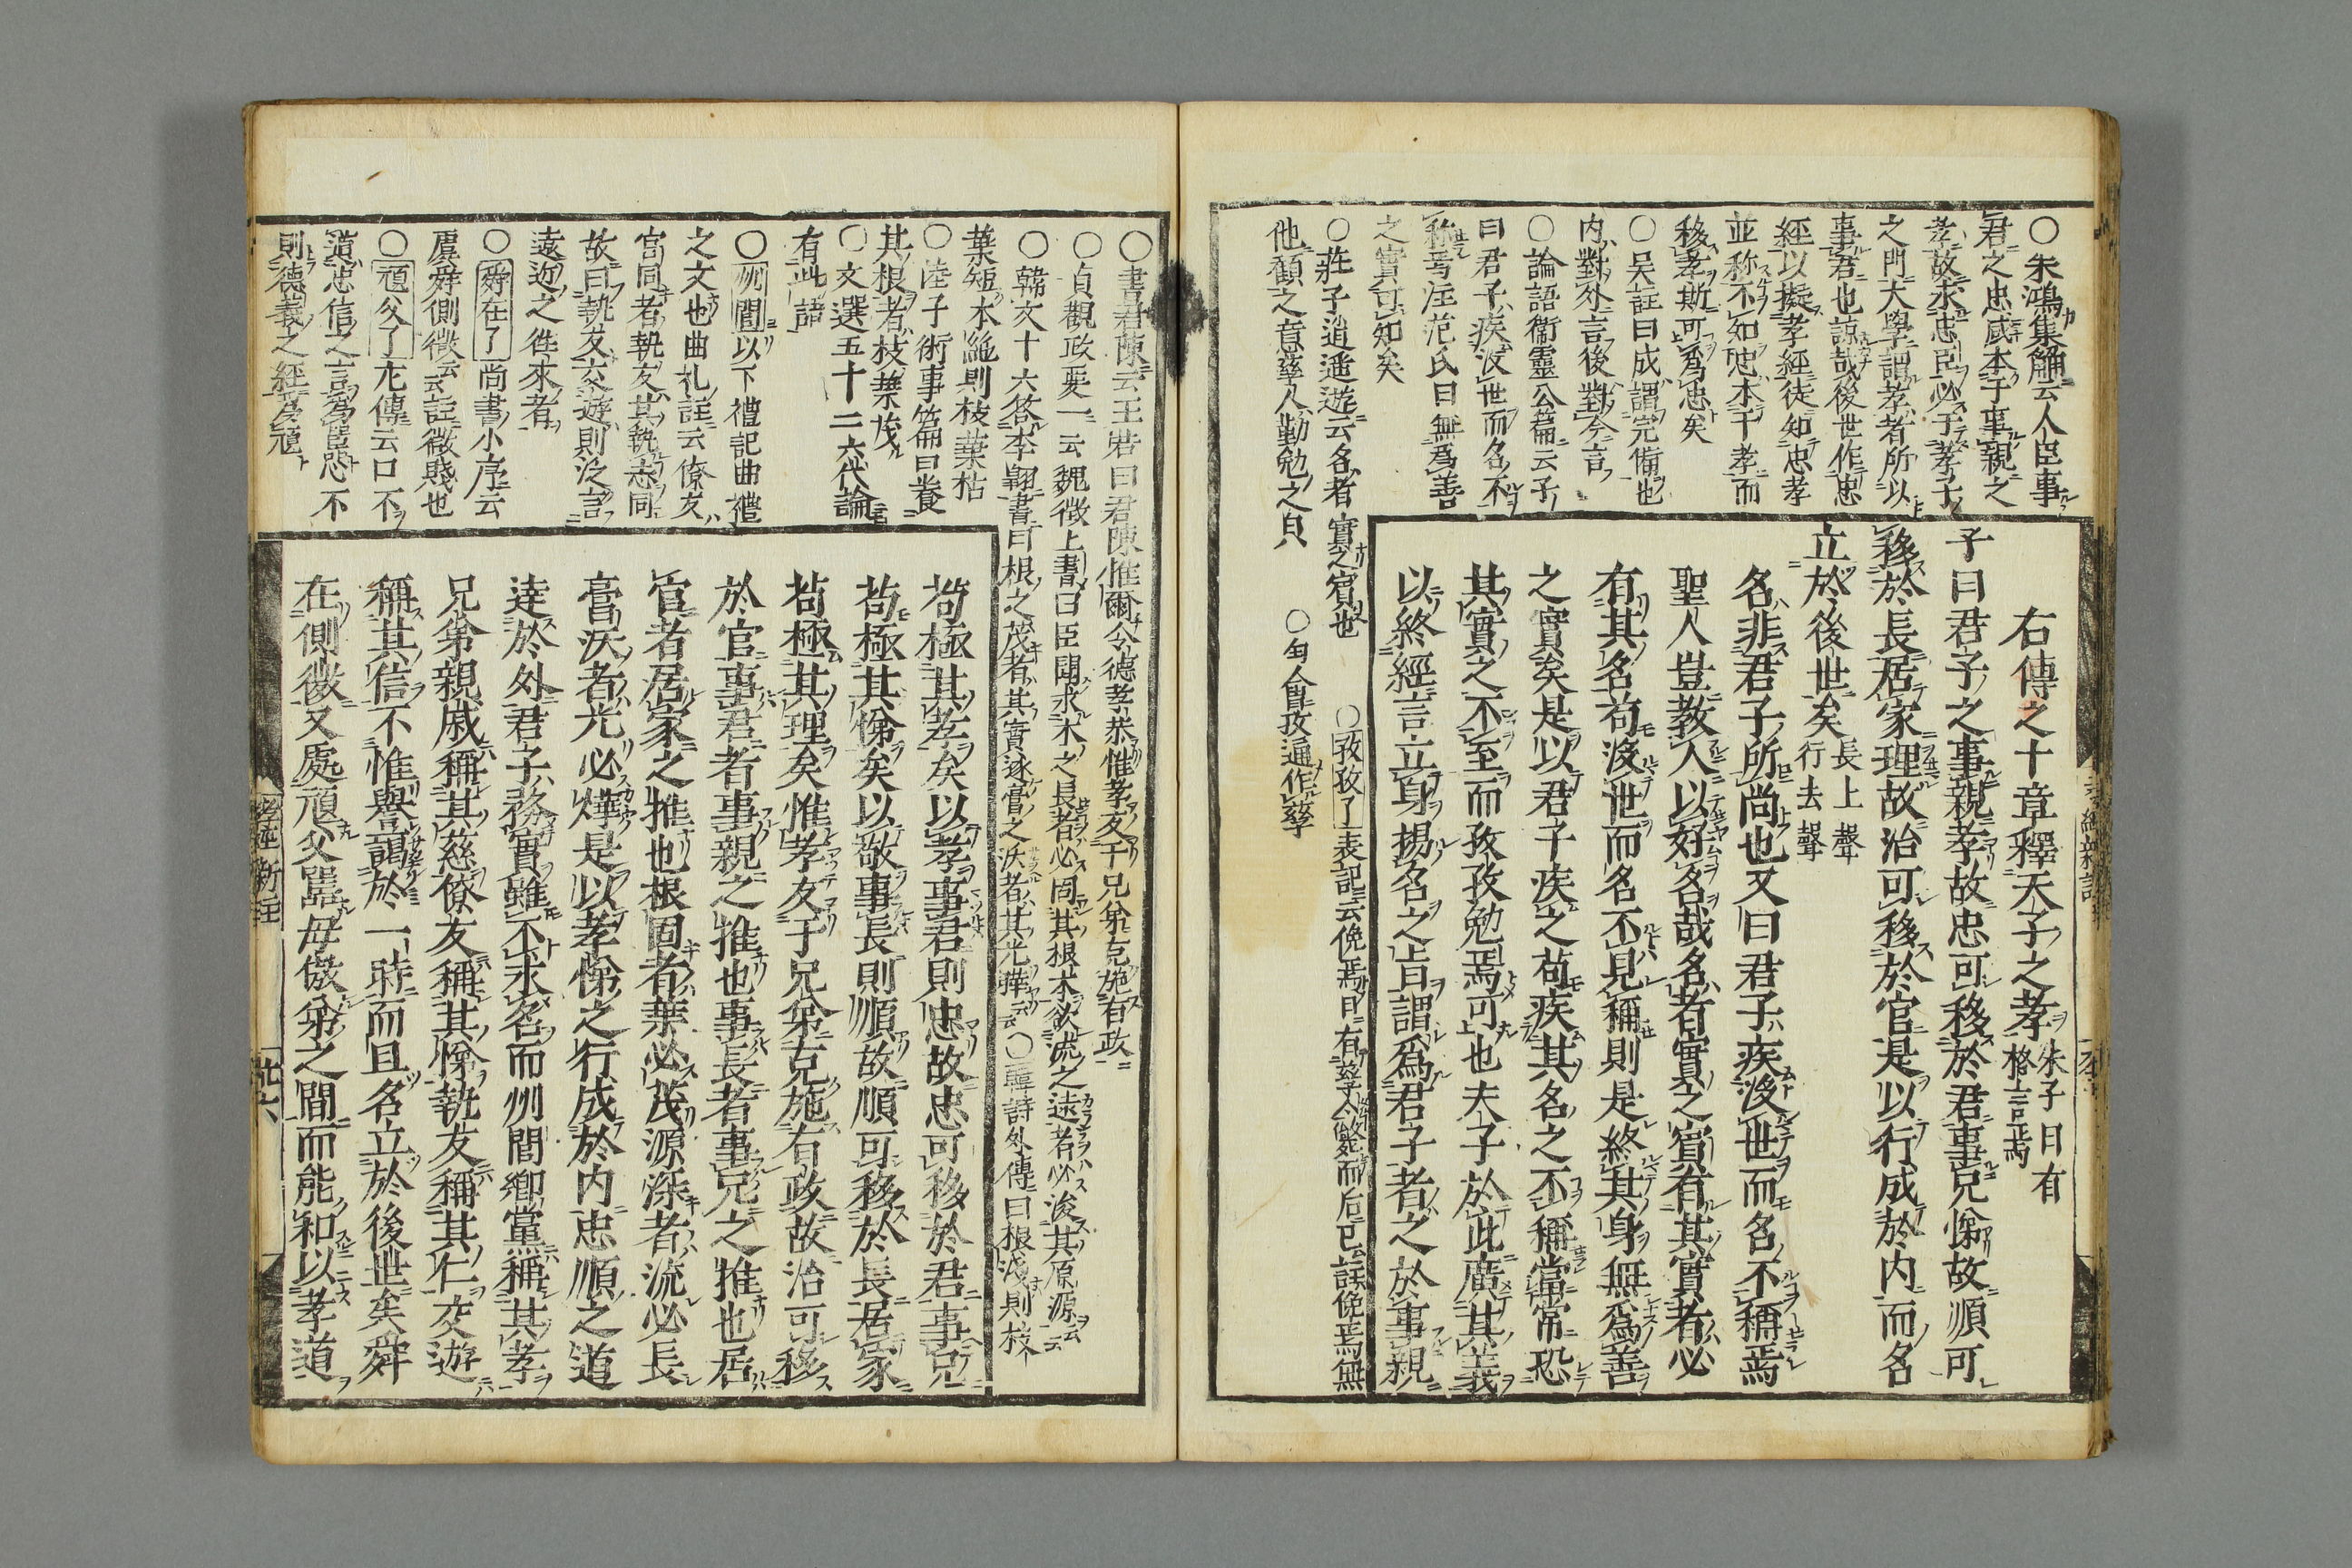 ○朱鴻集觿云人臣事
君之忠咸本于事親之
孝故求忠臣必于孝子
之門大學謂孝者所以
事君也諒哉後世作忠
經以擬孝經徒知忠孝
並称不知忠本于孝而
移孝斯可爲忠矣
○吳註曰成謂完備也
内對外言後對今言
○論語衞靈公篇云子
曰君子疾沒世而名不
称焉注范氏曰無爲善
之實可知矣
○莊子逍遥遊云名者實之賓也
○孜孜了表記云俛焉日有孳〻斃而后已註俛焉無
他顧之意孳〻勤勉之皃
○匀會孜通作孳
右傳之十章釋天子之孝
朱子曰有
格言焉
子曰君子之事親孝故忠可移於君事兄悌故順可
移於長居家理故治可移於官是以行成於内而名
立於後世矣
長上聲
行去聲
名非君子所尚也又曰君子疾沒世而名不稱焉
聖人豈教人以好名哉名者實之賓有其實者必
有其名苟沒世而名不見稱則是終其身無爲善
之實矣是以君子疾之苟疾其名之不稱當常恐
其實之不至而孜孜勉焉可也夫子於此廣其義
以終經言立身揚名之旨謂爲君子者之於事親
○書君陳云王若曰君陳惟爾令德孝恭惟孝友于兄弟克施有政
○貞觀政要一云魏徴上書曰臣聞求木之長者必固其根本欲流之遠者必浚其泉源云云
○韓文十六答李翺書曰根之茂者其實遂膏之沃者其光曄云云○韓詩外傳曰根淺則枝
葉短本絶則枝葉枯
○陸子術事篇曰養
其根者枝葉茂
○文選五十二六代論
有此語
○州閭以下禮記曲禮
之文也曲礼註云僚友
官同者執友其執志同
故曰執友交遊則泛言
遠近之徃來者
○舜在了尚書小序云
虞舜側微云云註微賤也
○頑父了左傳云口不
道忠信之言爲嚚心不
則德義之經爲頑
苟極其孝矣以孝事君則忠故忠可移於君事兄
苟極其悌矣以敬事長則順故順可移於長居家
苟極其理矣惟孝友于兄弟克施有政故治可移
於官事君者事親之推也事長者事兄之推也居
官者居家之推也根固者葉必茂源深者流必長
膏沃者光必燁是以孝悌之行成於内忠順之道
達於外君子務實雖不求名而州閭鄉黨稱其孝
兄弟親戚稱其慈僚友稱其悌執友稱其仁交遊
稱其信不惟譽藹於一時而且名立於後世矣舜
在側微又處頑父嚚母傲弟之間而能和以孝道
孝經新註
廿六